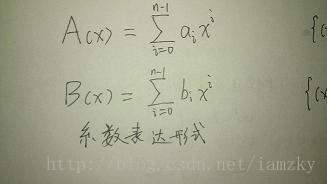 A(x) = \sum_{i=0}^{n-1} a_i x^i {(
B(x) = \sum_{i=0}^{n-1} b_i x^i {(x
系数表达形式
http://blog.csdn.net/iamzky